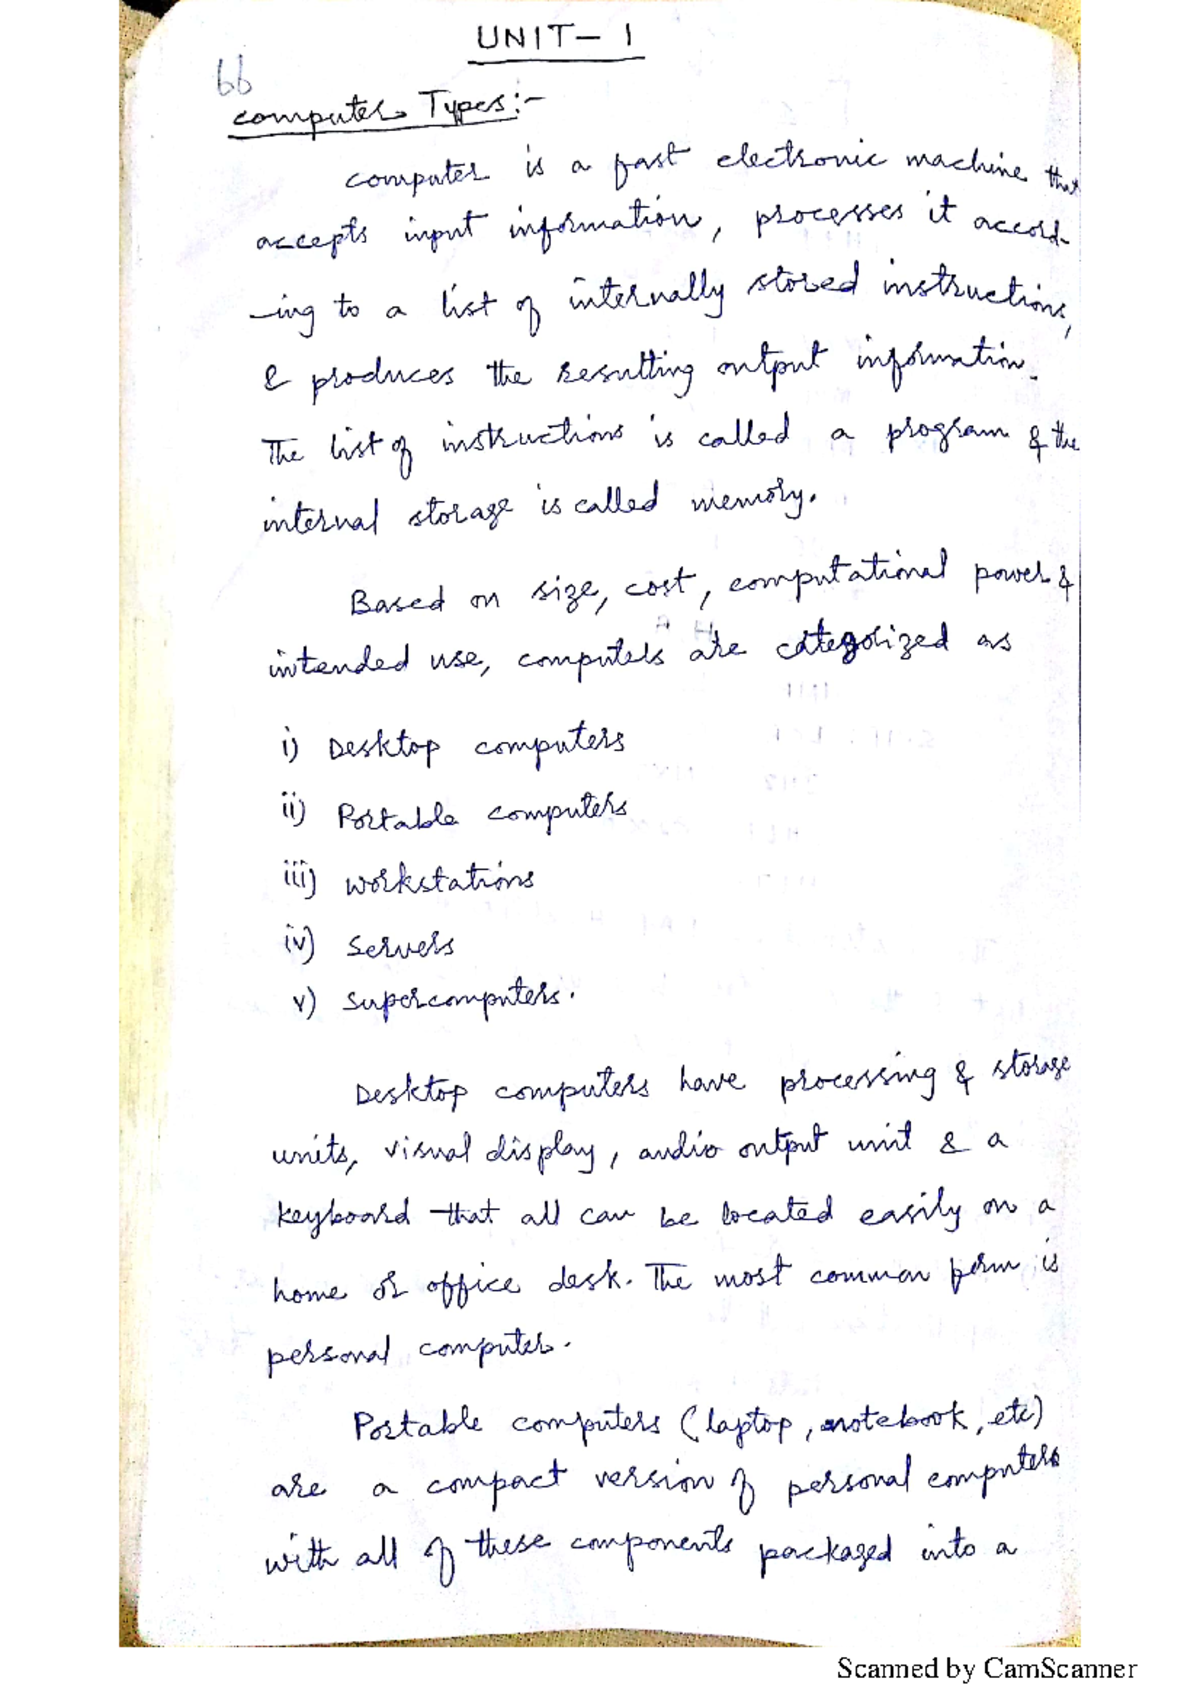 UNIT - 1
66
computer Types:-
computer is a fast electronic machine that
accepts input information, processes it accord-
-ing to a list of internally stored instructions,
& produces the resulting output information.
The list of instructions is called a program & the
internal storage is called memory.
Based on size, cost, computational power &
intended use, computers are categorized as
i) Desktop computers
ii) Portable computers
iii) workstations
iv) servers
v) supercomputers.
Desktop computers have processing & storage
units, visual display, audio output unit & a
keyboard that all can be located easily on a
home or office desk. The most common form is
personal computer.
Portable computers (laptop, notebook, etc)
are a compact version of personal computers
with all of these components packaged into a
Scanned by CamScanner